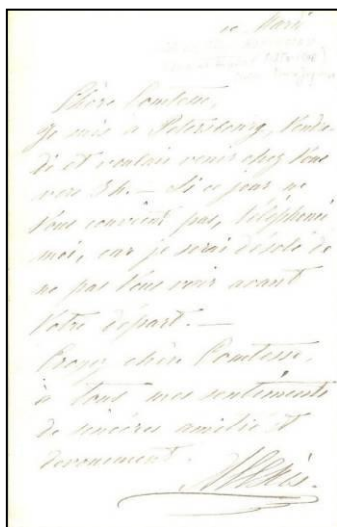 ce Mardi
Chère Comtesse,
Je suis à Petersbourg, Vendre-
di et voulais venir chez Vous
vers 3 h. — Si ce jour ne
Vous convient pas, téléphonez
moi, car je serai désolé de
ne pas Vous voir avant
Votre départ. —
Croyez chère Comtesse,
à tous mes sentiments
de sincères amitié et
devouement.
Alexis.